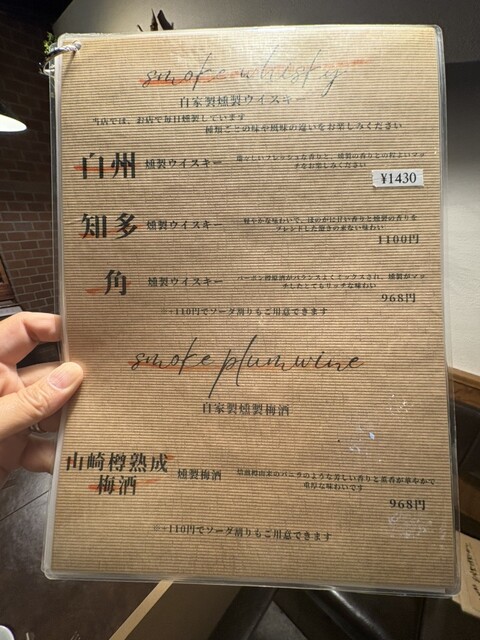 smoke whisky
自家製燻製ウイスキー
当店では、お店で毎日燻製しています
種類ごとの味や風味の違いをお楽しみください
白州 燻製ウイスキー 瑞々しいフレッシュな香りと、燻製の香りとの程よいマッ
チをお楽しみください
¥1430
知多 燻製ウイスキー 軽やかな味わいで、ほのかに甘い香りと燻製の香りを
ブレンドした飽きの来ない味わい
1100円
角 燻製ウイスキー バーボン樽原酒がバランスよくミックスされ、燻製がマッ
チしたとてもリッチな味わい
968円
※+110円でソーダ割りもご用意できます
smoke plumwine
自家製燻製梅酒
山崎樽熟成
梅酒
燻製梅酒 焙煎樽由来のバニラのような芳しい香りと薫香が華やかで
重厚な味わいです
968円
※+110円でソーダ割りもご用意できます